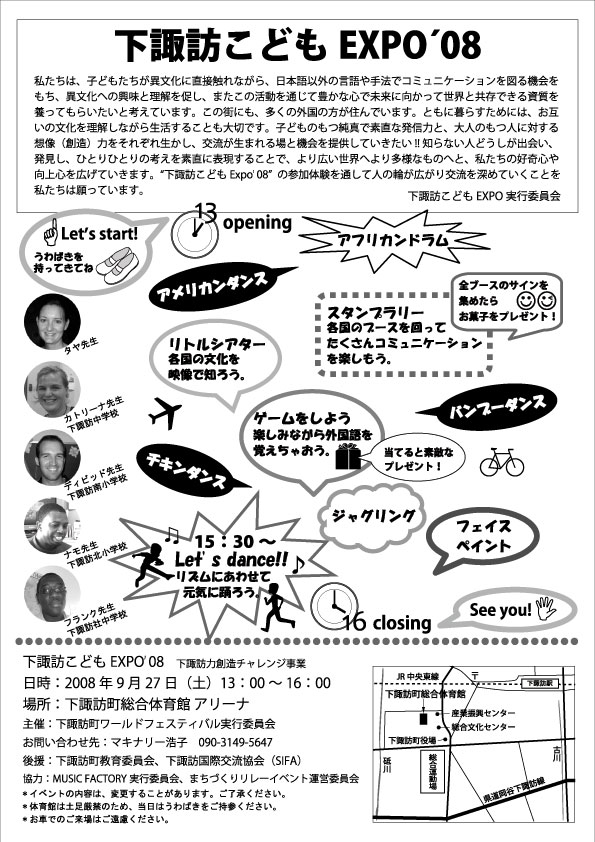 下諏訪こども EXPO´08
私たちは、子どもたちが異文化に直接触れながら、日本語以外の言語や手法でコミュニケーションを図る機会を
もち、異文化への興味と理解を促し、またこの活動を通じて豊かな心で未来に向かって世界と共存できる資質を
養ってもらいたいと考えています。この街にも、多くの外国の方が住んでいます。ともに暮らすためには、お互
いの文化を理解しながら生活することも大切です。子どものもつ純真で素直な発信力と、大人のもつ人に対する
想像（創造）力をそれぞれ生かし、交流が生まれる場と機会を提供していきたい!! 知らない人どうしが出会い、
発見し、ひとりひとりの考えを素直に表現することで、より広い世界へより多様なものへと、私たちの好奇心や
向上心を広げていきます。“下諏訪こども Expo' 08” の参加体験を通して人の輪が広がり交流を深めていくことを
私たちは願っています。
下諏訪こども EXPO 実行委員会
Let's start!
うわばきを
持ってきてね
13 opening
アフリカンドラム
アメリカンダンス
全ブースのサインを
集めたら
お菓子をプレゼント！
スタンプラリー
各国のブースを回って
たくさんコミュニケーション
を楽しもう。
タヤ先生
リトルシアター
各国の文化を
映像で知ろう。
カトリーナ先生
下諏訪中学校
バンブーダンス
ゲームをしよう
楽しみながら外国語を
覚えちゃおう。
当てると素敵な
プレゼント！
チキンダンス
ディビッド先生
下諏訪南小学校
ジャグリング
フェイス
ペイント
ナモ先生
下諏訪北小学校
15：30 ～
Let' s dance!!
リズムにあわせて
元気に踊ろう。
フランク先生
下諏訪社中学校
16 closing
See you!
下諏訪こども EXPO' 08 下諏訪力創造チャレンジ事業
日時：2008 年 9 月 27 日（土）13：00 ～ 16：00
場所：下諏訪町総合体育館 アリーナ
主催：下諏訪町ワールドフェスティバル実行委員会
お問い合わせ先：マキナリー浩子 090-3149-5647
後援：下諏訪町教育委員会、下諏訪国際交流協会（SIFA）
協力：MUSIC FACTORY 実行委員会、まちづくりリレーイベント運営委員会
＊イベントの内容は、変更することがあります。ご了承ください。
＊体育館は土足厳禁のため、当日はうわばきをご持参ください。
＊お車でのご来場はご遠慮ください。
JR 中央東線
〒
下諏訪駅
下諏訪町総合体育館
産業振興センター
総合文化センター
下諏訪町役場
砥川
総合運動場
古川
県道岡谷下諏訪線